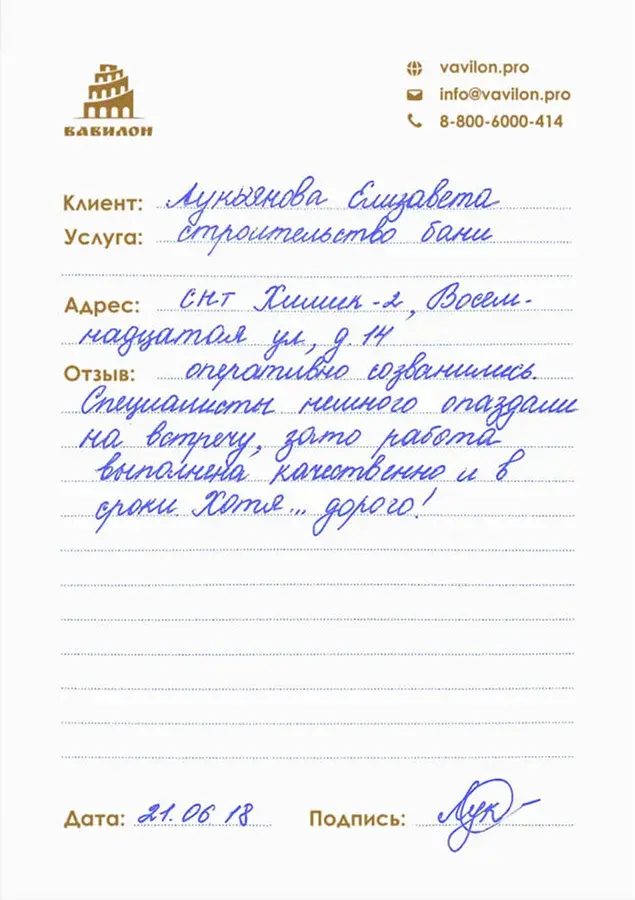 ВАВИЛОН
vavilon.pro
info@vavilon.pro
8-800-6000-414
Клиент: Лукьянова Елизавета
Услуга: строительство бани
Адрес: СНТ Химик-2, Восем-
надцатая ул, д. 14
Отзыв: оперативно созванились.
Специалисты немного опаздали
на встречу, зато работа
выполнена качественно и в
сроки. Хотя... дорого!
Дата: 21.06 18 Подпись: Лук